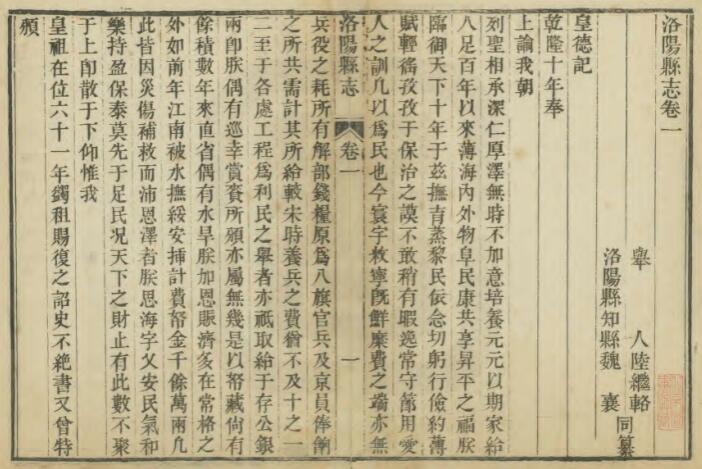 洛陽縣志卷一
舉人陸繼輅
洛陽縣知縣魏襄
同纂
皇德記
乾隆十年奉
上諭我朝
列聖相承深仁厚澤無時不加意培養元元以期家給
人足百年以來薄海內外物阜民康共享昇平之福朕
臨御天下十年于茲撫育蒸黎民依念切躬行儉約薄
賦輕徭孜孜于保治之謨不敢稍有暇逸常守節用愛
人之訓凡以爲民也今寰宇敉寧旣鮮糜費之端亦無
洛陽縣志 卷一 一
兵役之耗所有解部錢糧原爲八旗官兵及京員俸餉
之所共需計其所給較宋時養兵之費猶不及十之一
二至于各處工程爲利民之舉者亦祇取給于存公銀
兩卽朕偶有巡幸賞賚所頒亦屬無幾是以帑藏尙有
餘積數年來直省偶有水旱朕加恩賑濟多在常格之
外如前年江南被水撫綏安揷計費帑金千餘萬兩凡
此皆因災傷補救而沛恩澤者朕思海宇乂安民氣和
樂持盈保泰莫先于足民况天下之財止有此數不聚
于上卽散于下仰惟我
皇祖在位六十一年蠲租賜復之詔史不絕書又曾特
頒